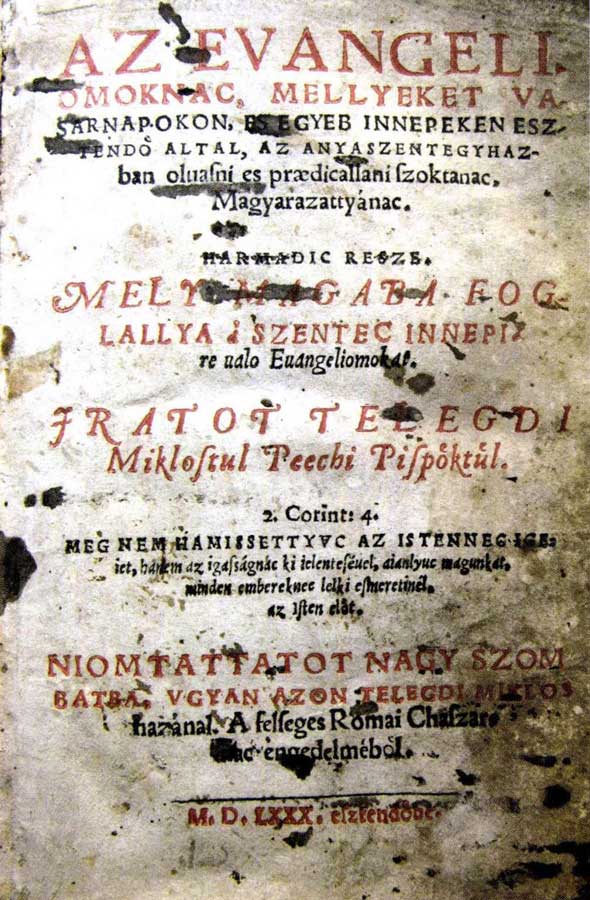 AZ EVANGELI.
OMOKNAC, MELLYEKET VA-
SARNAPOKON, ES EGYEB INNEPEKEN ESZ-
TENDŐ ALTAL, AZ ANYASZENTEGYHAZ-
ban oluaſni es prædicallani ſzoktanac,
Magyarazattyánac.
HARMADIC RESZE.
MELY MAGABA FOG-
LALLYA á SZENTEC INNEPI-
re ualo Euangeliomokat.
JRATOT TELEGDI
Mikloſtul Peechi Piſpőktűl.
2. Corint: 4.
MEG NEM HAMISSETTYVC AZ ISTENNEC IGE-
iet, hanem az igaſságnac ki ielenteſéuel, aianlyuc magunkat,
minden embereknec lelki eſmeretinél,
az Iſten előt.
NIOMTATTATOT NAGY SZOM
BATBA, VGYAN AZON TELEGDI MIKLOS
hazánal. A felſeges Romai Chaſzár-
nac engedelméből.
M. D. LXXX. eſztendőbe.